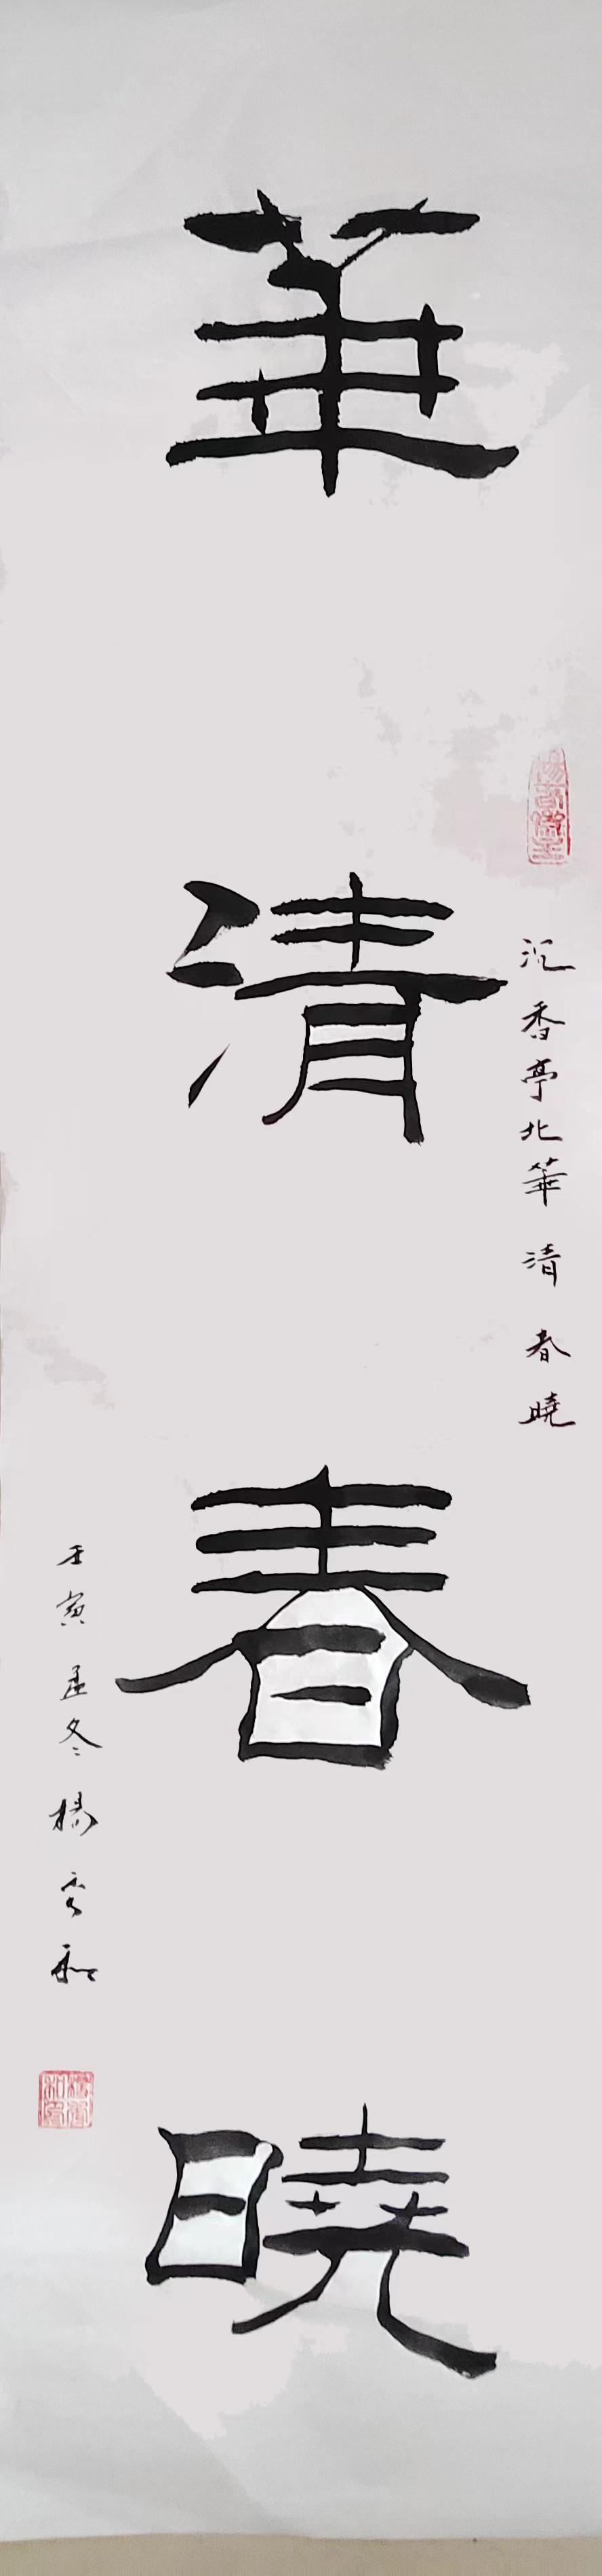 華清春曉
沉香亭北華清春曉
壬寅孟冬楊秀和